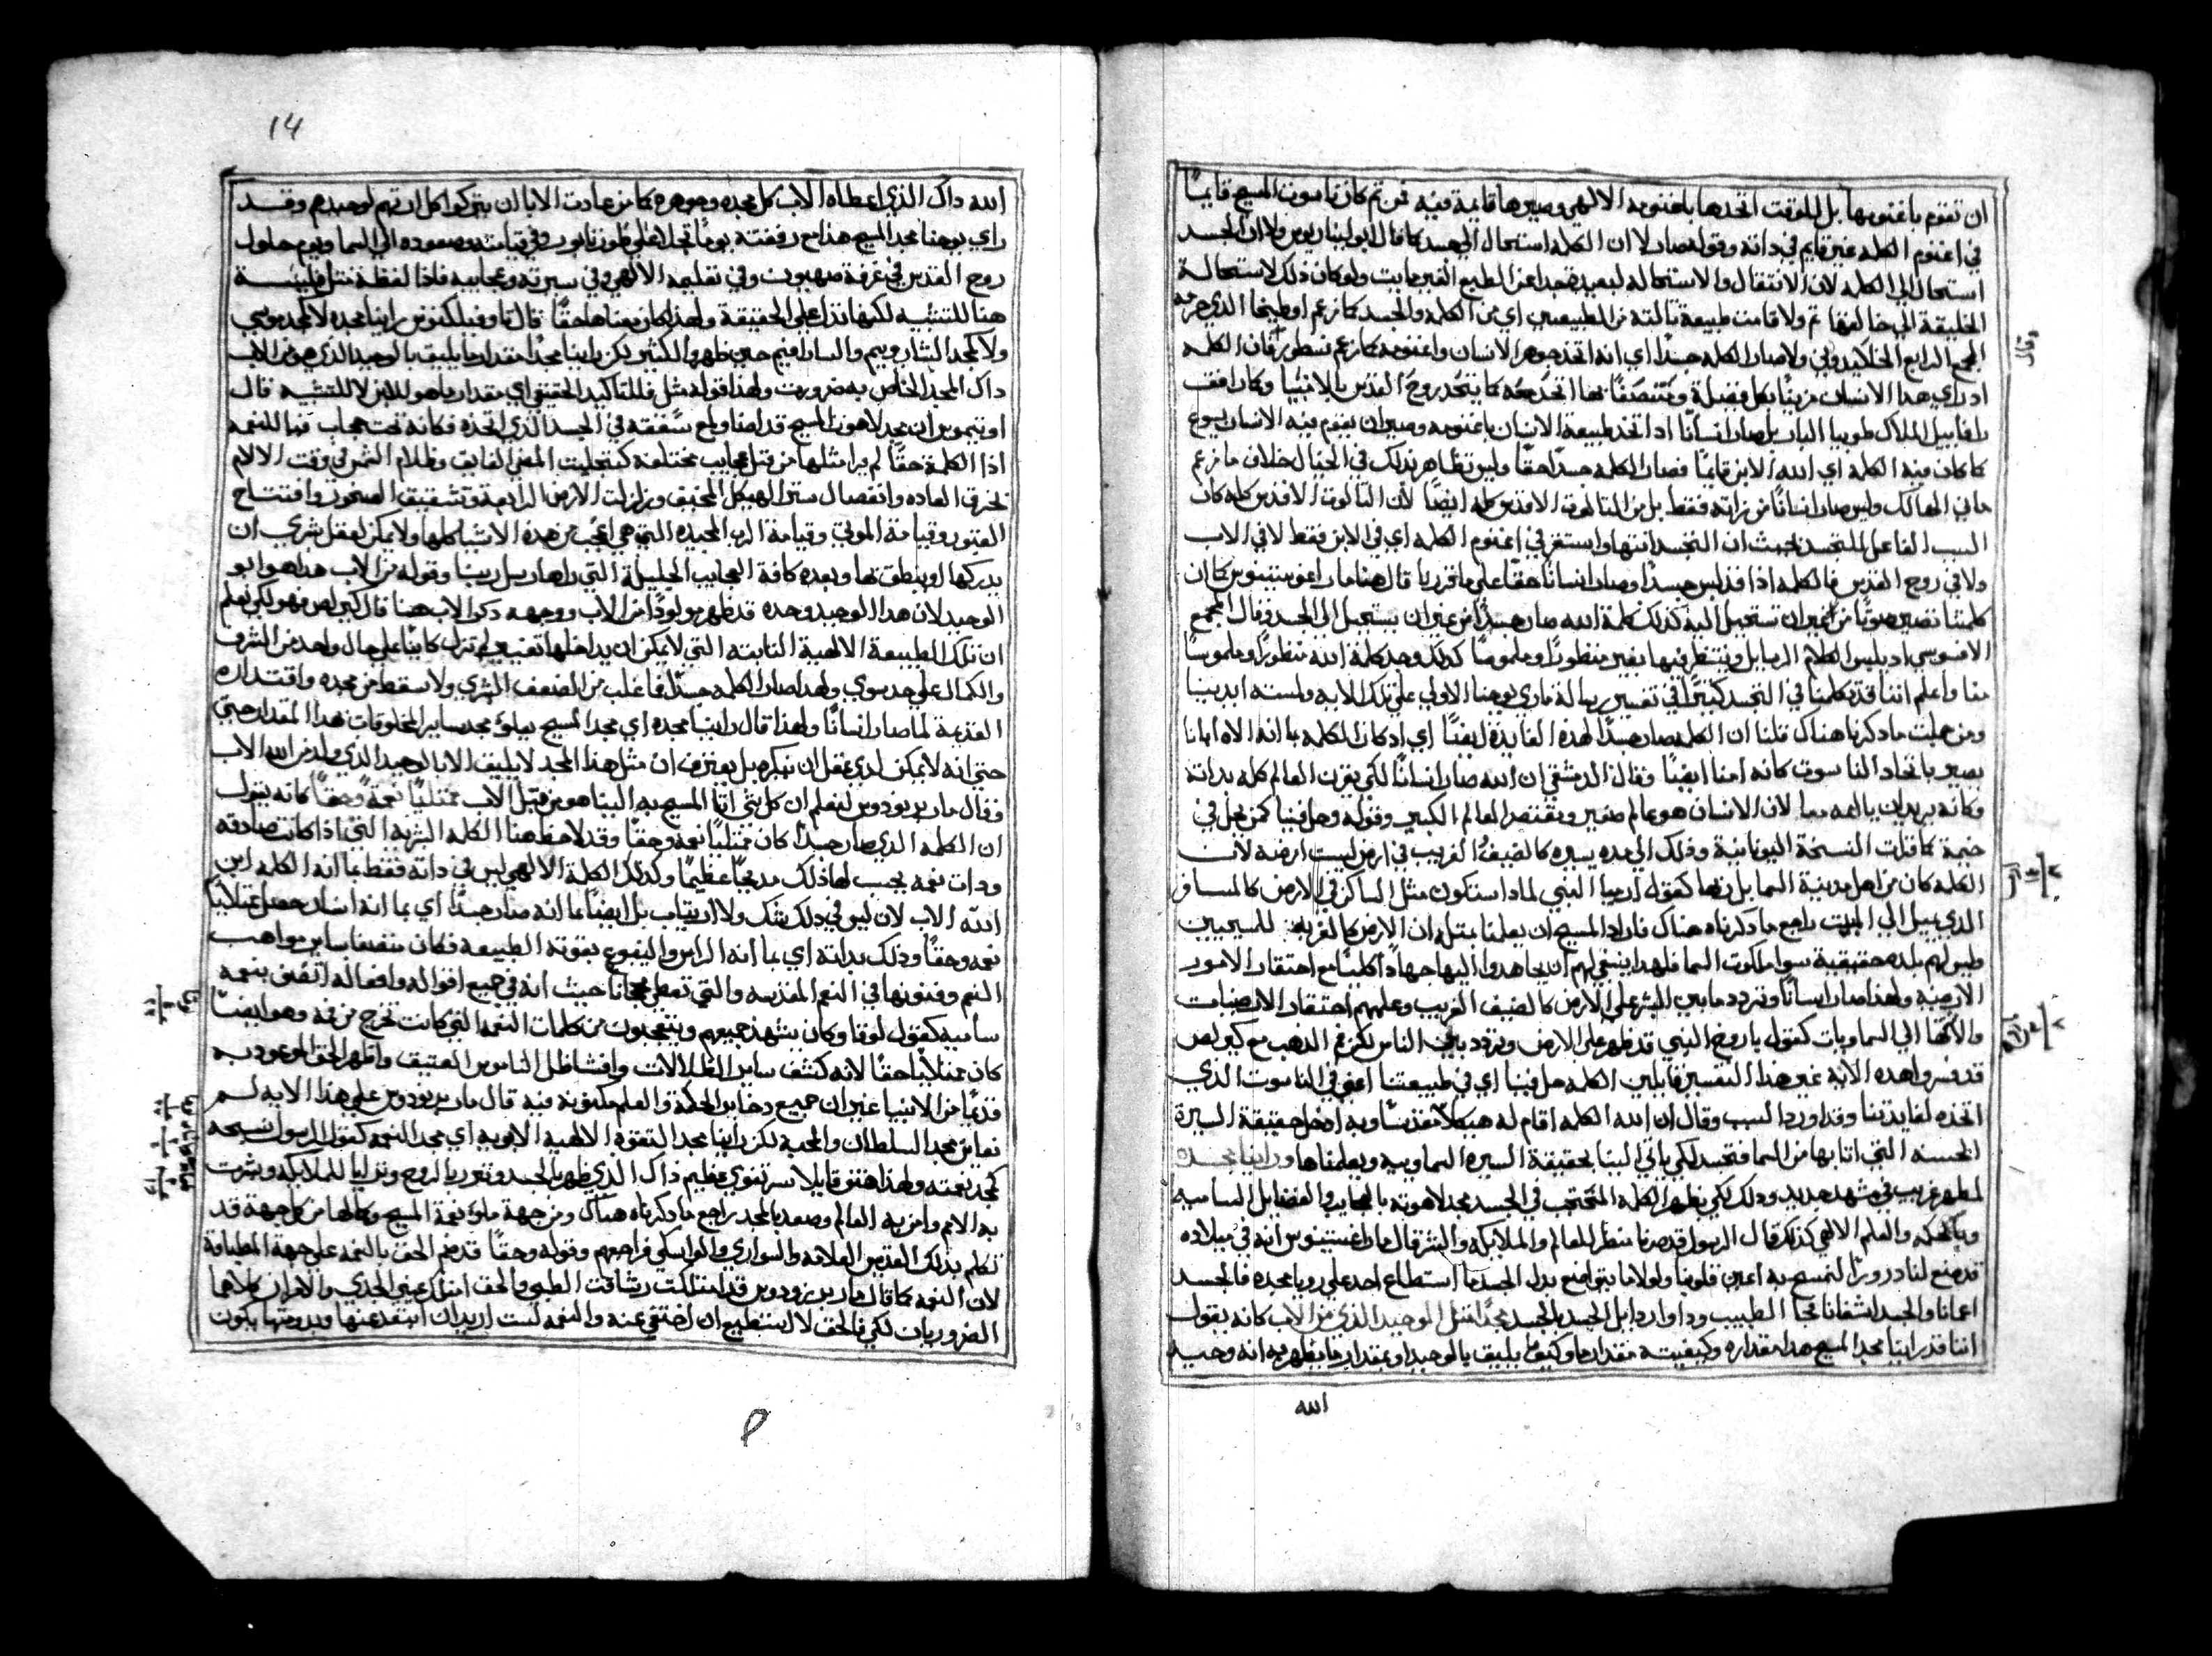 ان تقوم باقنومها بل للوقت اتخدها باقنومه الالهي وصيرها قايمة فيه فمن تم كان ناسوت المسيح قايمًا
في اقنوم الكلمه غير قايم في داته وقوله صار لا ان الكلمه استحال الي جسد كما قال ابوليناريوس ولا ان الجسد
استحال الي الكلمه لان الانتقال والاستحاله لبعيد جدا عن الطبع الغير مايت ولو كان ذلك لاستحالة
الخليقة الي خالقها تم ولا قامت طبيعة تالتة من الطبيعتين اي من الكلمه والجسد كما زعم اوطيخا الذي حرمه
وقال
المجمع الرابع الخلكيدوني ولا صار الكلمه جسدًا اي انه اتخد جوهر الانسان واقنومه كما زعم نسطور فان الكلمه
اد راي هدا الانسان مزينًا بكل فضيلة اتحد معه كما يتحد روح القدس بالانبيا وكما رافق
رافاييل الملاك طوبيا البار بل صار انسانًا اد اتخد طبيعة الانسان باقنومه وصير ان يقوم فيه الانسان يسوع
كما كان فيه الكلمه اي الله الابن قايمًا فصار الكلمه جسدًا حقًا وليس تظاهر بدلك في الخيال خلاف ما زعم
ماني الهالك وليس صار انسانًا من داته فقط بل من التالوت الاقدس كله ايضًا لان التالوت الاقدس كله كان
السبب الفاعل للتجسد بحيث ان التجسد انتها واستقر في اقنوم الكلمه اي في الابن فقط لا في الاب
ولا في روح القدس فالكلمه اذا قد لبس جسدًا وصار انسانًا حقًا علي ما قررنا قال هنا مار اغوستينوس كما ان
كلمتنا تصير صوتًا من غير ان تستحيل اليه كذلك كلمة الله صار جسدًا من غير ان يستحيل الي الجسد وقال المجمع
الافسوسي اد يلبس الكلام الرسايل وينتظر فيها يصير منظورًا وملموسًا كدلك وجد كلمة الله منظورًا وملموسًا
منا واعلم اننا قد تكلمنا في التجسد كثيرًا في تفسير رسالة ماري يوحنا الاولي علي تلك الايه ولمسته ايدينا
ومن جملت ما دكرنا هناك قلنا ان الكلمه صار جسدًا لهده الفايدة ايضًا اي اد كان الكلمه بما انه الاه ابانا
يصير باتحاد الناسوت كانه امنا ايضًا وقال الدمشقي ان الله صار انسانًا لكي يقرن العالم كله بداته
وكانه يربطه به لان الانسان هو عالم صغير ومختصر العالم الكبير وقوله وحل فينا كمن يحل في
خيمة كما قرات النسخة اليونانية ودلك الي مده يسيره كالضيف الغريب في ارض ليست ارضه لان
الكلمه كان من اهل مدينة السما بل ربها كقول ارميا النبي لمادا ستكون مثل الساكن في الارض كالمسافر
الذي يميل الي المبيت راجع ما دكرناه هناك فاراد المسيح ان يعلمنا بمثله ان الارض كالغربة للمسيحيين
وليس لهم بلده حقيقية سوا ملكوت السما فلهدا ينبغي لهم ان يجاهدوا اليها جهادًا كليًا مع احتقار الامور
الارضية ولهذا صار انسانًا وتردد ما بين البشر علي الارض كالضيف الغريب وعلمهم احتقار الارضيات
والالتجا الي السماويات كقول باروخ النبي قد ظهر علي الارض وتردد بين الناس لكن فم الذهب مع كيرلص
قد فسروا هده الاية غير هذا التفسير قايلين الكلمه حل فينا اي في طبيعتنا اعني في الناسوت الدي
اتخذه لفايدتنا وقد اورد السبب وقال ان الله الكلمه اقام له هيكلاً مقدسًا وبه ادخل حقيقة السيرة
الحسنه التي اتا بها من السما فتجسد لكي ياتي الينا بحقيقة السيره السماوية ويعلمناها وراينا مجده
لمظهر غريب في مشهد جديد ودلك لكي يظهر الكلمه المحتجب في الجسد مجد لاهوته بالعجايب والفضايل السامية
وبالحكمه والعلم الالهي كذلك قال الرسول قد صرنا منظرًا للعالم والملايكه والبشر قال مار اغستينوس انه في ميلاده
قد صنع لنا درورًا لتمسح به اعين قلوبنا ولولا ما يتواضع بدل الجسد ما استطاع احد علي رويا مجده فالجسد
اعمانا والجسد اشفانا فجا الطبيب وداوا ردايل الجسد بالجسد مجدًا مثل الوحيد الذي من الاب كانه يقول
اننا قد راينا مجد المسيح هدا مقداره وكيفيته مقدار ما وكيف ما يليق بالوحيد او بمقدار ما يظهر به انه وحيد
الله
14
الله داك الذي اعطاه الاب كل مجده وجوهره كما من عادت الابا ان يتركوا كل ارتهم لوحيدهم وقد
راي يوحنا مجد المسيح هذا مع رفقته يومًا تجلا علي طور تابور وفي قيامته وصعوده الي السما ويوم حلول
روح القدس في غرفة صهيون وفي تعليمه الالهي وفي سيرته وعجايبه فاذا لفظة مثل فليست
هنا للتشبيه لكنها تدل علي الحقيقة ولهذا كان معناها حقًا قال تاوفيلكتوس راينا مجده لا كمجد موسي
ولا كمجد الشاروبيم والسارافيم حين ظهروا لكثير لكن راينا مجدًا مقدار ما يليق بالوحيد الدي هو من الاب
داك المجد الخاص به ضرورت ولهذا قوله مثل فللتاكيد الحقيقي اي مقدار ما هو للابن لا للتشبيه قال
اوتيميوس ان مجد لاهوت المسيح قد اضا ولمع سقفه في الجسد الذي اتخذه فكانه تحت حجاب فيا للنعمه
اذا الكلمة حقًا لم يرا مثلها من قبل عجايب مختلفة كتجليت المضي الفايق وظلام الشمس في وقت الالام
لخرق العاده وانفصال ستر الهيكل المخيف وزلزلت الارض الرايعة وتشقيق الصخور وافتتاح
القبور وقيامة الموتي وقيامة الرب المجيده التي هي اعجب من هذه الاشيا كلها ولا يمكن لعقل بشري ان
يدركها او ينطق بها وبعده كافة العجايب الجليلة التي راها رسل ربنا وقوله من الاب هذا هو ابو
الوحيد لان هدا الوحيد وحده قد ظهر مولودًا من الاب ووجهه دكر الاب هنا قال كيرلص فهو لكي نعلم
ان تلك الطبيعة الالهية الثابته التي لا يمكن ان يداخلها تغيير لم تزل كاينًا علي حال واحد من الشرف
والكمال علي حد سوي ولهدا صار الكلمه جسدًا فما غلب من الضعف البشري ولا سقط من مجده واقتداره
القديمة لما صار انسانًا ولهذا قال راينا مجده اي مجد المسيح يعلو مجد ساير المخلوقات بهدا المقدار حتي
حتي انه لا يمكن لدي عقل ان ينكره بل يعترف ان مثل هذا المجد لا يليق الا بالوحيد الدي ولد من الله الاب
وقال مار برنردوس لنعلم ان كل شي اتا المسيح به الينا هو من قبل الاب ممتليًا نعمة وحقًا كانه يقول
ان الكلمه الدي صار جسدًا كان ممتليًا نعمه وحقًا وقد لاحظ هنا الكلمه البشريه التي اذا كانت صادقه
ودات نعمه يجب لها ذلك مديحًا عظيمًا وكدلك الكلمة الالهي ليس في داته فقط بما انه الكلمه ابن
الله الاب لان ليس في دلك شك ولا ارتياب بل ايضًا بما انه صار جسدًا اي بما انه انسان حصل ممتليًا
نعمه وحقًا ودلك بداته اي بما انه الراس والينبوع بقوته الطبيعه فكان متصفًا بساير مواهب
النعم وفنونها في النعم المقدسه والتي تعطي مجانًا حيث انه في جميع اقواله وافعاله اتصف بنعمه
ساميه كقول لوقا وكان يشهد جميعهم ويتعجبون من كلمات النعمه التي كانت تخرج من فمه وهو ايضًا
كان ممتليًا حقًا لانه كشف ساير الظلالات وافشا ظل الناموس العتيق واظهر الحق الموعود به
قديمًا من الانبيا غير ان جميع دخاير الحكمة والعلم مكنونة فيه قال مار برنردوس علي هدا الايه لم
نعاين مجد السلطان والمحبه لكن راينا مجد التقوه الالهية الابويه اي مجد النعمه كقول الرسول نسبحه
كمجد نعمته ولهذا هتف قايلا سر تقوي عظيم داك الدي ظهر بالجسد وتبرر بالروح وتراي للملايكه وبشرت
به الامم وامن به العالم وصعد بالمجد راجع ما دكرناه هناك ومن جهة ملو نعمة المسيح وكمالها من كل جهة قد
تكلم بدلك القديس العلامه والسواري والواسكي فراجعهم وقوله وحقًا قد ضم الحق بالنعمه علي جهة المطابقة
لان النعمه كما قال مار برنردوس قد امتلكت رشاقت الطبع والحق امتلك عيني الجدي والامران كلاهما
الضروريان لكي فالحق لا استطيع ان اختفي عنه والنعمه لست اريد ان ابتعد عنها وبدونها يكون